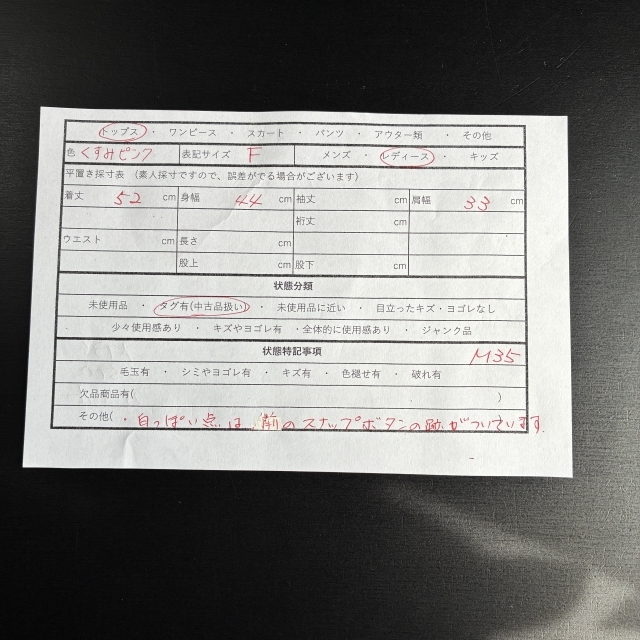 トップス ・ ワンピース ・ スカート ・ パンツ ・ アウター類 ・ その他
色 くすみピンク 表記サイズ F メンズ ・ レディース ・ キッズ
平置き採寸表 (素人採寸ですので、誤差がでる場合がございます)
着丈 52 cm 身幅 44 cm 袖丈 cm 肩幅 33 cm
裄丈 cm
ウエスト cm 長さ cm
股上 cm 股下 cm
状態分類
未使用品 ・ タグ有(中古品扱い) ・ 未使用品に近い ・ 目立ったキズ・ヨゴレなし
少々使用感あり ・ キズやヨゴレ有 ・全体的に使用感あり ・ ジャンク品
状態特記事項 M35
毛玉有 ・ シミやヨゴレ有 ・ キズ有 ・ 色褪せ有 ・ 破れ有
欠品商品有( )
その他( ・白っぽい点は、前のスナップボタンの跡がついています.